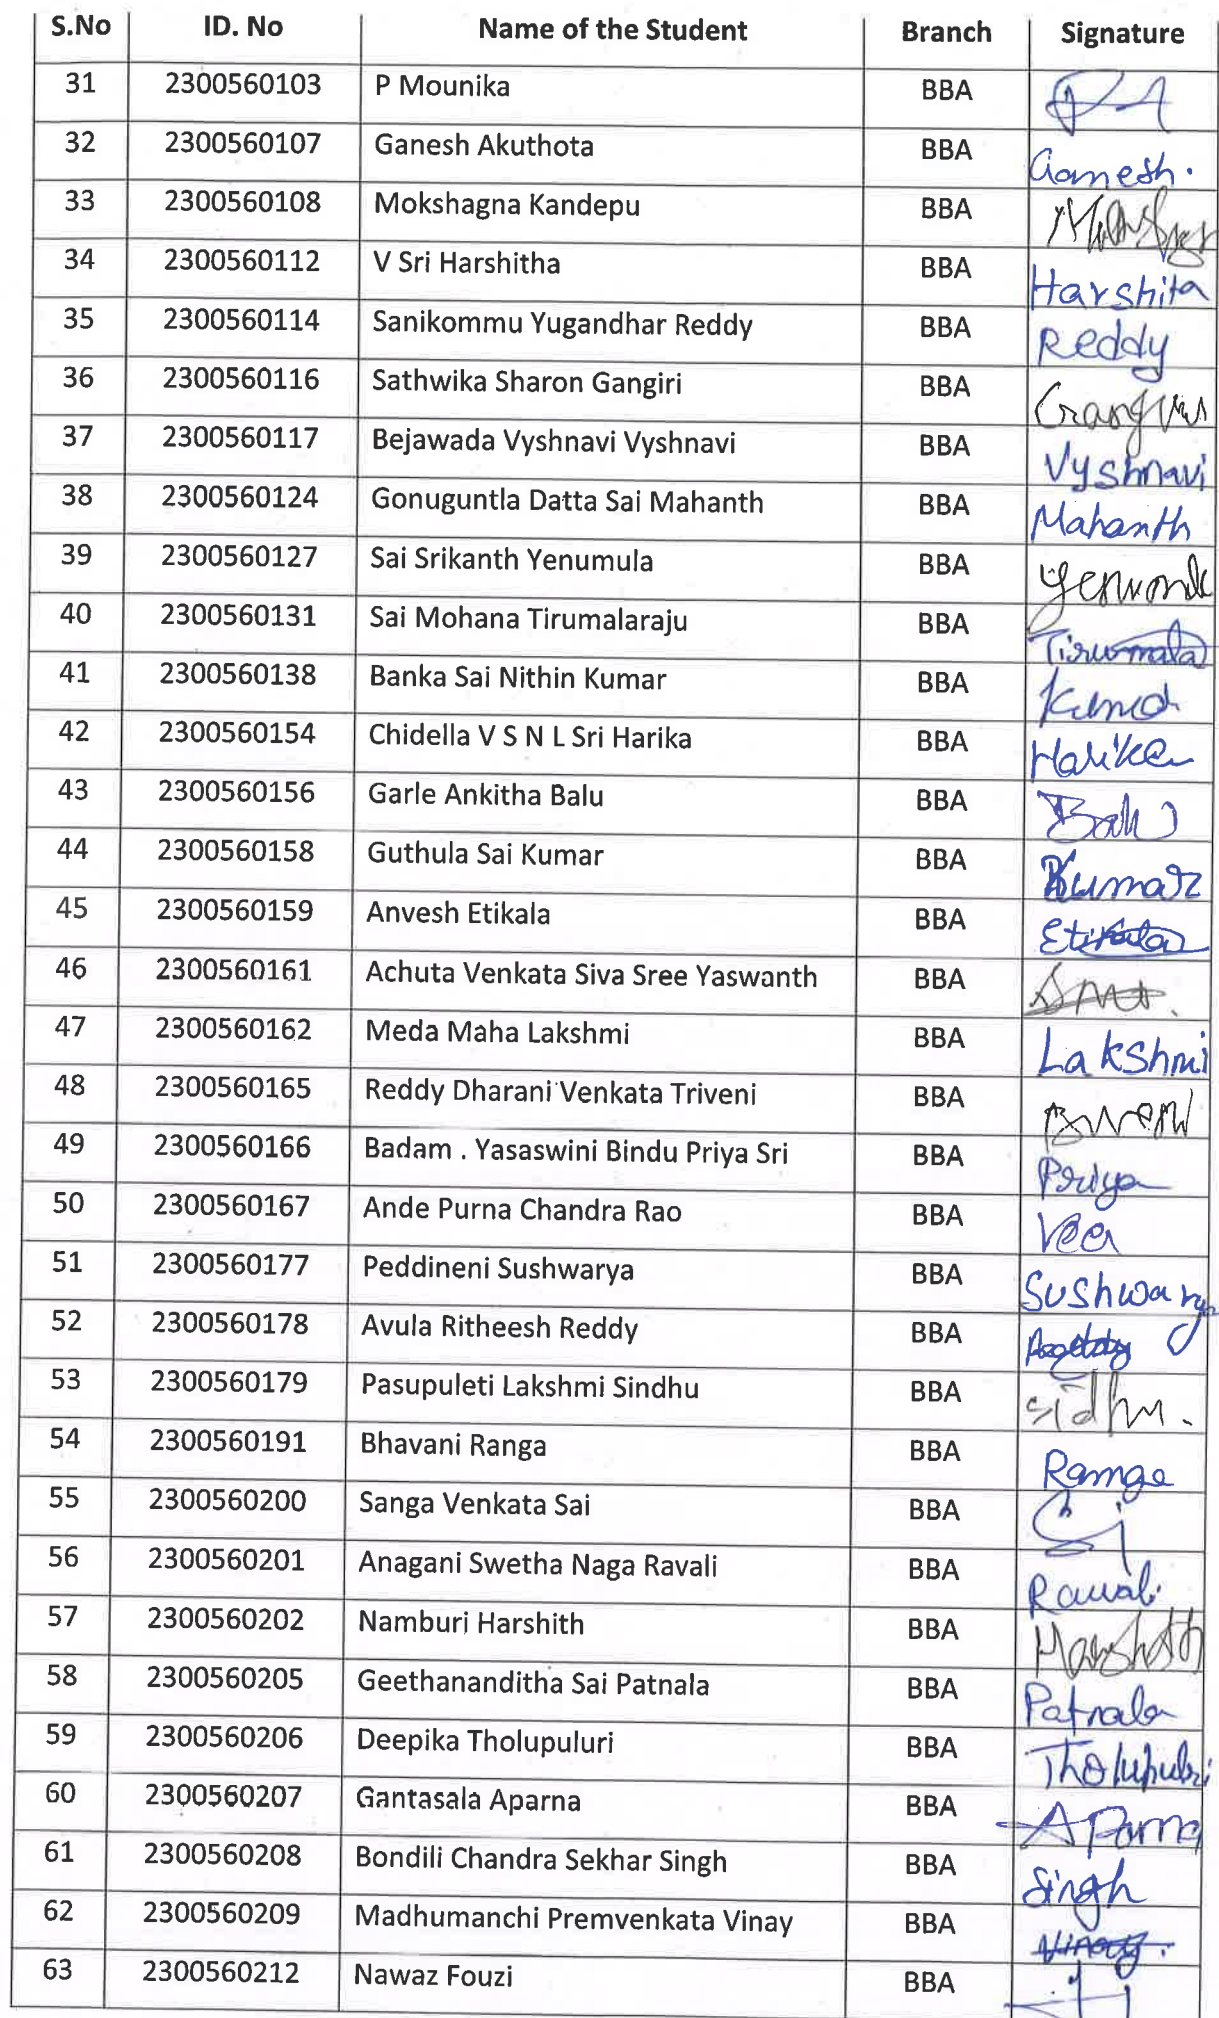 S.No ID. No Name of the Student Branch Signature
31 2300560103 P Mounika BBA
32 2300560107 Ganesh Akuthota BBA Ganesh.
33 2300560108 Mokshagna Kandepu BBA
34 2300560112 V Sri Harshitha BBA Harshita
35 2300560114 Sanikommu Yugandhar Reddy BBA Reddy
36 2300560116 Sathwika Sharon Gangiri BBA
37 2300560117 Bejawada Vyshnavi Vyshnavi BBA Vyshnavi
38 2300560124 Gonuguntla Datta Sai Mahanth BBA Mahanth
39 2300560127 Sai Srikanth Yenumula BBA
40 2300560131 Sai Mohana Tirumalaraju BBA Tirumala
41 2300560138 Banka Sai Nithin Kumar BBA
42 2300560154 Chidella V S N L Sri Harika BBA Harika
43 2300560156 Garle Ankitha Balu BBA Balu
44 2300560158 Guthula Sai Kumar BBA Kumar
45 2300560159 Anvesh Etikala BBA Etikala
46 2300560161 Achuta Venkata Siva Sree Yaswanth BBA
47 2300560162 Meda Maha Lakshmi BBA Lakshmi
48 2300560165 Reddy Dharani Venkata Triveni BBA
49 2300560166 Badam . Yasaswini Bindu Priya Sri BBA Priya
50 2300560167 Ande Purna Chandra Rao BBA
51 2300560177 Peddineni Sushwarya BBA Sushwarya
52 2300560178 Avula Ritheesh Reddy BBA
53 2300560179 Pasupuleti Lakshmi Sindhu BBA Sidhu.
54 2300560191 Bhavani Ranga BBA Ranga
55 2300560200 Sanga Venkata Sai BBA
56 2300560201 Anagani Swetha Naga Ravali BBA Ravali
57 2300560202 Namburi Harshith BBA Harshith
58 2300560205 Geethananditha Sai Patnala BBA Patnala
59 2300560206 Deepika Tholupuluri BBA Tholupuluri
60 2300560207 Gantasala Aparna BBA Aparna
61 2300560208 Bondili Chandra Sekhar Singh BBA Singh
62 2300560209 Madhumanchi Premvenkata Vinay BBA Vinay.
63 2300560212 Nawaz Fouzi BBA